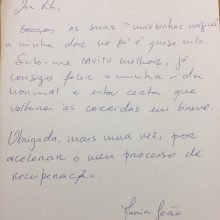 Graças às suas "mãozinhas mágicas"
a minha dor no pé é quase nula
Sinto-me MUITO melhor, já
consigo fazer a minha vida
normal e estou certa que
voltarei às corridas em breve.
Obrigada, mais uma vez, por
acelerar o meu processo de
recuperação.
Maria João